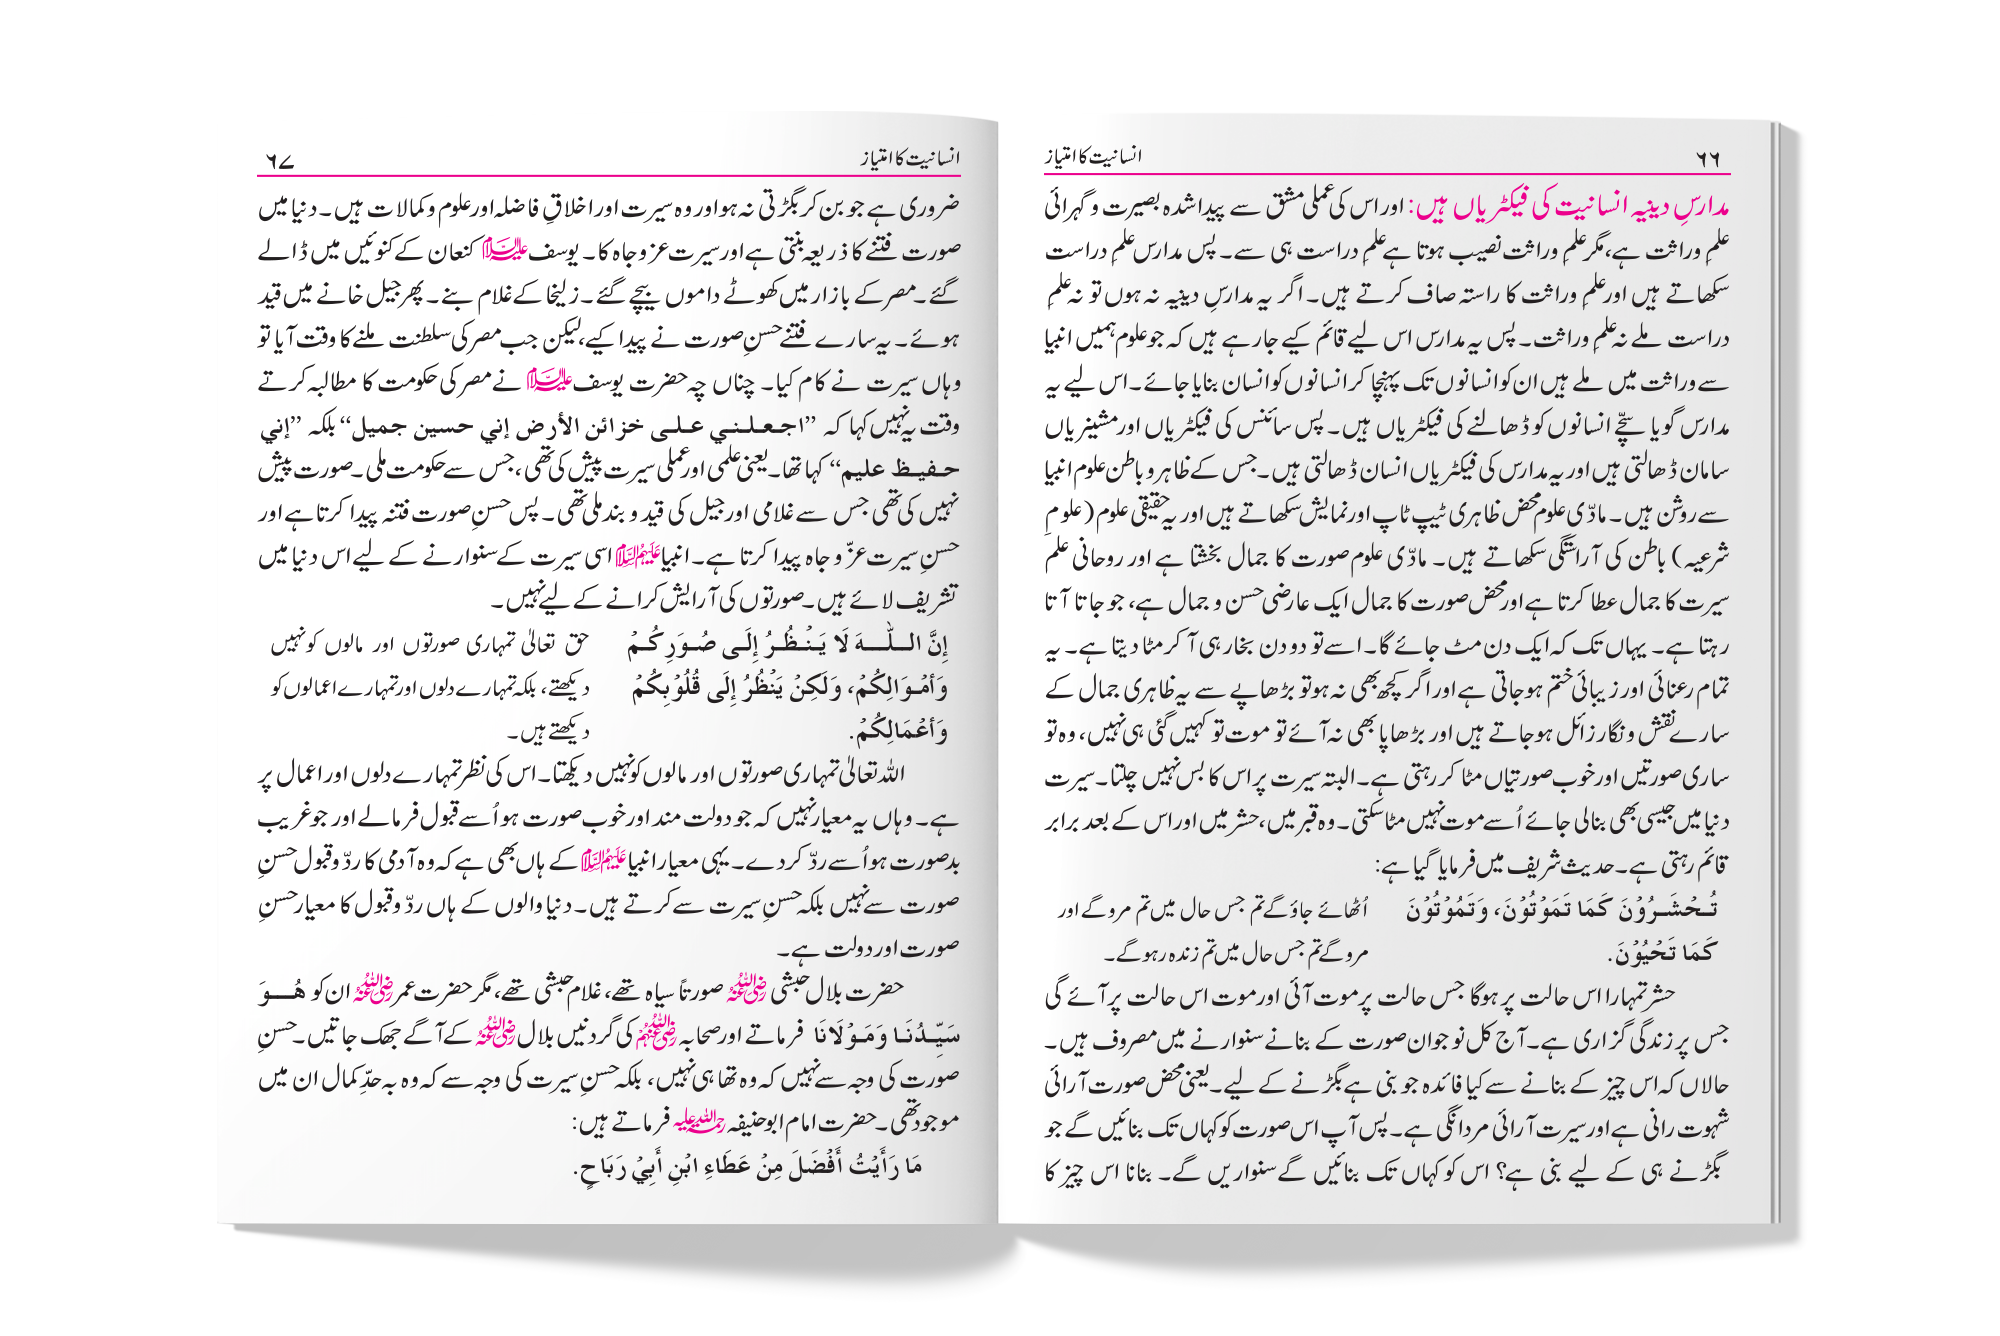 ۶۶
انسانیت کا امتیاز
مدارسِ دینیہ انسانیت کی فیکٹریاں ہیں: اور اس کی عملی مشق سے پیدا شدہ بصیرت و گہرائی
علمِ وراثت ہے، مگر علمِ وراثت نصیب ہوتا ہے علمِ دراست ہی سے۔ پس مدارس علمِ دراست
سکھاتے ہیں اور علمِ وراثت کا راستہ صاف کرتے ہیں۔ اگر یہ مدارسِ دینیہ نہ ہوں تو نہ علمِ
دراست ملے نہ علمِ وراثت۔ پس یہ مدارس اس لیے قائم کیے جارہے ہیں کہ جو علوم ہمیں انبیا
سے وراثت میں ملے ہیں ان کو انسانوں تک پہنچا کر انسانوں کو انسان بنایا جائے۔ اس لیے یہ
مدارس گویا سچّے انسانوں کو ڈھالنے کی فیکٹریاں ہیں۔ پس سائنس کی فیکٹریاں اور مشینریاں
سامان ڈھالتی ہیں اور یہ مدارس کی فیکٹریاں انسان ڈھالتی ہیں۔ جس کے ظاہر و باطن علوم انبیا
سے روشن ہیں۔ مادّی علوم محض ظاہری ٹیپ ٹاپ اور نمایش سکھاتے ہیں اور یہ حقیقی علوم (علومِ
شرعیہ) باطن کی آراستگی سکھاتے ہیں۔ مادّی علوم صورت کا جمال بخشتا ہے اور روحانی علم
سیرت کا جمال عطا کرتا ہے اور محض صورت کا جمال ایک عارضی حسن و جمال ہے، جو جاتا آتا
رہتا ہے۔ یہاں تک کہ ایک دن مٹ جائے گا۔ اسے تو دو دن بخار ہی آکر مٹا دیتا ہے۔ یہ
تمام رعنائی اور زیبائی ختم ہوجاتی ہے اور اگر کچھ بھی نہ ہو تو بڑھاپے سے یہ ظاہری جمال کے
سارے نقش و نگار زائل ہوجاتے ہیں اور بڑھاپا بھی نہ آئے تو موت تو کہیں گئی ہی نہیں، وہ تو
ساری صورتیں اور خوب صورتیاں مٹا کر رہتی ہے۔ البتہ سیرت پر اس کا بس نہیں چلتا۔ سیرت
دنیا میں جیسی بھی بنالی جائے اُسے موت نہیں مٹاسکتی۔ وہ قبر میں، حشر میں اور اس کے بعد برابر
قائم رہتی ہے۔ حدیث شریف میں فرمایا گیا ہے:
تُحْشَرُوْنَ كَمَا تَمَوْتُوْنَ، وَتَمُوْتُوْنَ اُٹھائے جاؤگے تم جس حال میں تم مروگے اور
كَمَا تَحْيَوْنَ. مروگے تم جس حال میں تم زندہ رہوگے۔
حشر تمہارا اس حالت پر ہوگا جس حالت پر موت آئی اور موت اس حالت پر آئے گی
جس پر زندگی گزاری ہے۔ آج کل نوجوان صورت کے بنانے سنوارنے میں مصروف ہیں۔
حالاں کہ اس چیز کے بنانے سے کیا فائدہ جو بنی ہے بگڑنے کے لیے۔ یعنی محض صورت آرائی
شہوت رانی ہے اور سیرت آرائی مردانگی ہے۔ پس آپ اس صورت کو کہاں تک بنائیں گے جو
بگڑنے ہی کے لیے بنی ہے؟ اس کو کہاں تک بنائیں گے سنواریں گے۔ بنانا اس چیز کا
انسانیت کا امتیاز
۶۷
ضروری ہے جو بن کر بگڑتی نہ ہو اور وہ سیرت اور اخلاقِ فاضلہ اور علوم و کمالات ہیں۔ دنیا میں
صورت فتنے کا ذریعہ بنتی ہے اور سیرت عز و جاہ کا۔ یوسف علیہ السلام کنعان کے کنوئیں میں ڈالے
گئے۔ مصر کے بازار میں کھوٹے داموں بیچے گئے۔ زلیخا کے غلام بنے۔ پھر جیل خانے میں قید
ہوئے۔ یہ سارے فتنے حسنِ صورت نے پیدا کیے، لیکن جب مصر کی سلطنت ملنے کا وقت آیا تو
وہاں سیرت نے کام کیا۔ چناں چہ حضرت یوسف علیہ السلام نے مصر کی حکومت کا مطالبہ کرتے
وقت یہ نہیں کہا کہ ”اجعلني على خزائن الأرض إني حسين جميل“ بلکہ ”إني
حفيظ عليم“ کہا تھا۔ یعنی علمی اور عملی سیرت پیش کی تھی، جس سے حکومت ملی۔ صورت پیش
نہیں کی تھی جس سے غلامی اور جیل کی قید و بند ملی تھی۔ پس حسنِ صورت فتنہ پیدا کرتا ہے اور
حسنِ سیرت عزّ و جاہ پیدا کرتا ہے۔ انبیا علیہم السلام اسی سیرت کے سنوارنے کے لیے اس دنیا میں
تشریف لائے ہیں۔ صورتوں کی آرایش کرانے کے لیے نہیں۔
إِنَّ اللّٰهَ لَا يَنْظُرُ إِلَى صُوَرِكُمْ حق تعالیٰ تمہاری صورتوں اور مالوں کو نہیں
وَأَمْوَالِكُمْ، وَلَكِنْ يَنْظُرُ إِلَى قُلُوْبِكُمْ دیکھتے، بلکہ تمہارے دلوں اور تمہارے اعمالوں کو
وَأَعْمَالِكُمْ. دیکھتے ہیں۔
اللہ تعالیٰ تمہاری صورتوں اور مالوں کو نہیں دیکھتا۔ اس کی نظر تمہارے دلوں اور اعمال پر
ہے۔ وہاں یہ معیار نہیں کہ جو دولت مند اور خوب صورت ہو اُسے قبول فرمالے اور جو غریب
بدصورت ہو اُسے ردّ کردے۔ یہی معیار انبیا علیہم السلام کے ہاں بھی ہے کہ وہ آدمی کا ردّ و قبول حسنِ
صورت سے نہیں بلکہ حسنِ سیرت سے کرتے ہیں۔ دنیا والوں کے ہاں ردّ و قبول کا معیار حسنِ
صورت اور دولت ہے۔
حضرت بلال حبشی رضی اللہ عنہ صورتاً سیاہ تھے، غلام حبشی تھے، مگر حضرت عمر رضی اللہ عنہ ان کو هُوَ
سَيِّدُنَا وَمَوْلَانَا فرماتے اور صحابہ رضی اللہ عنہم کی گردنیں بلال رضی اللہ عنہ کے آگے جھک جاتیں۔ حسنِ
صورت کی وجہ سے نہیں کہ وہ تھا ہی نہیں، بلکہ حسنِ سیرت کی وجہ سے کہ وہ بہ حدِّ کمال ان میں
موجود تھی۔ حضرت امام ابو حنیفہ رحمۃ اللہ علیہ فرماتے ہیں:
مَا رَأَيْتُ أَفْضَلَ مِنْ عَطَاءِ ابْنِ أَبِيْ رَبَاحٍ.